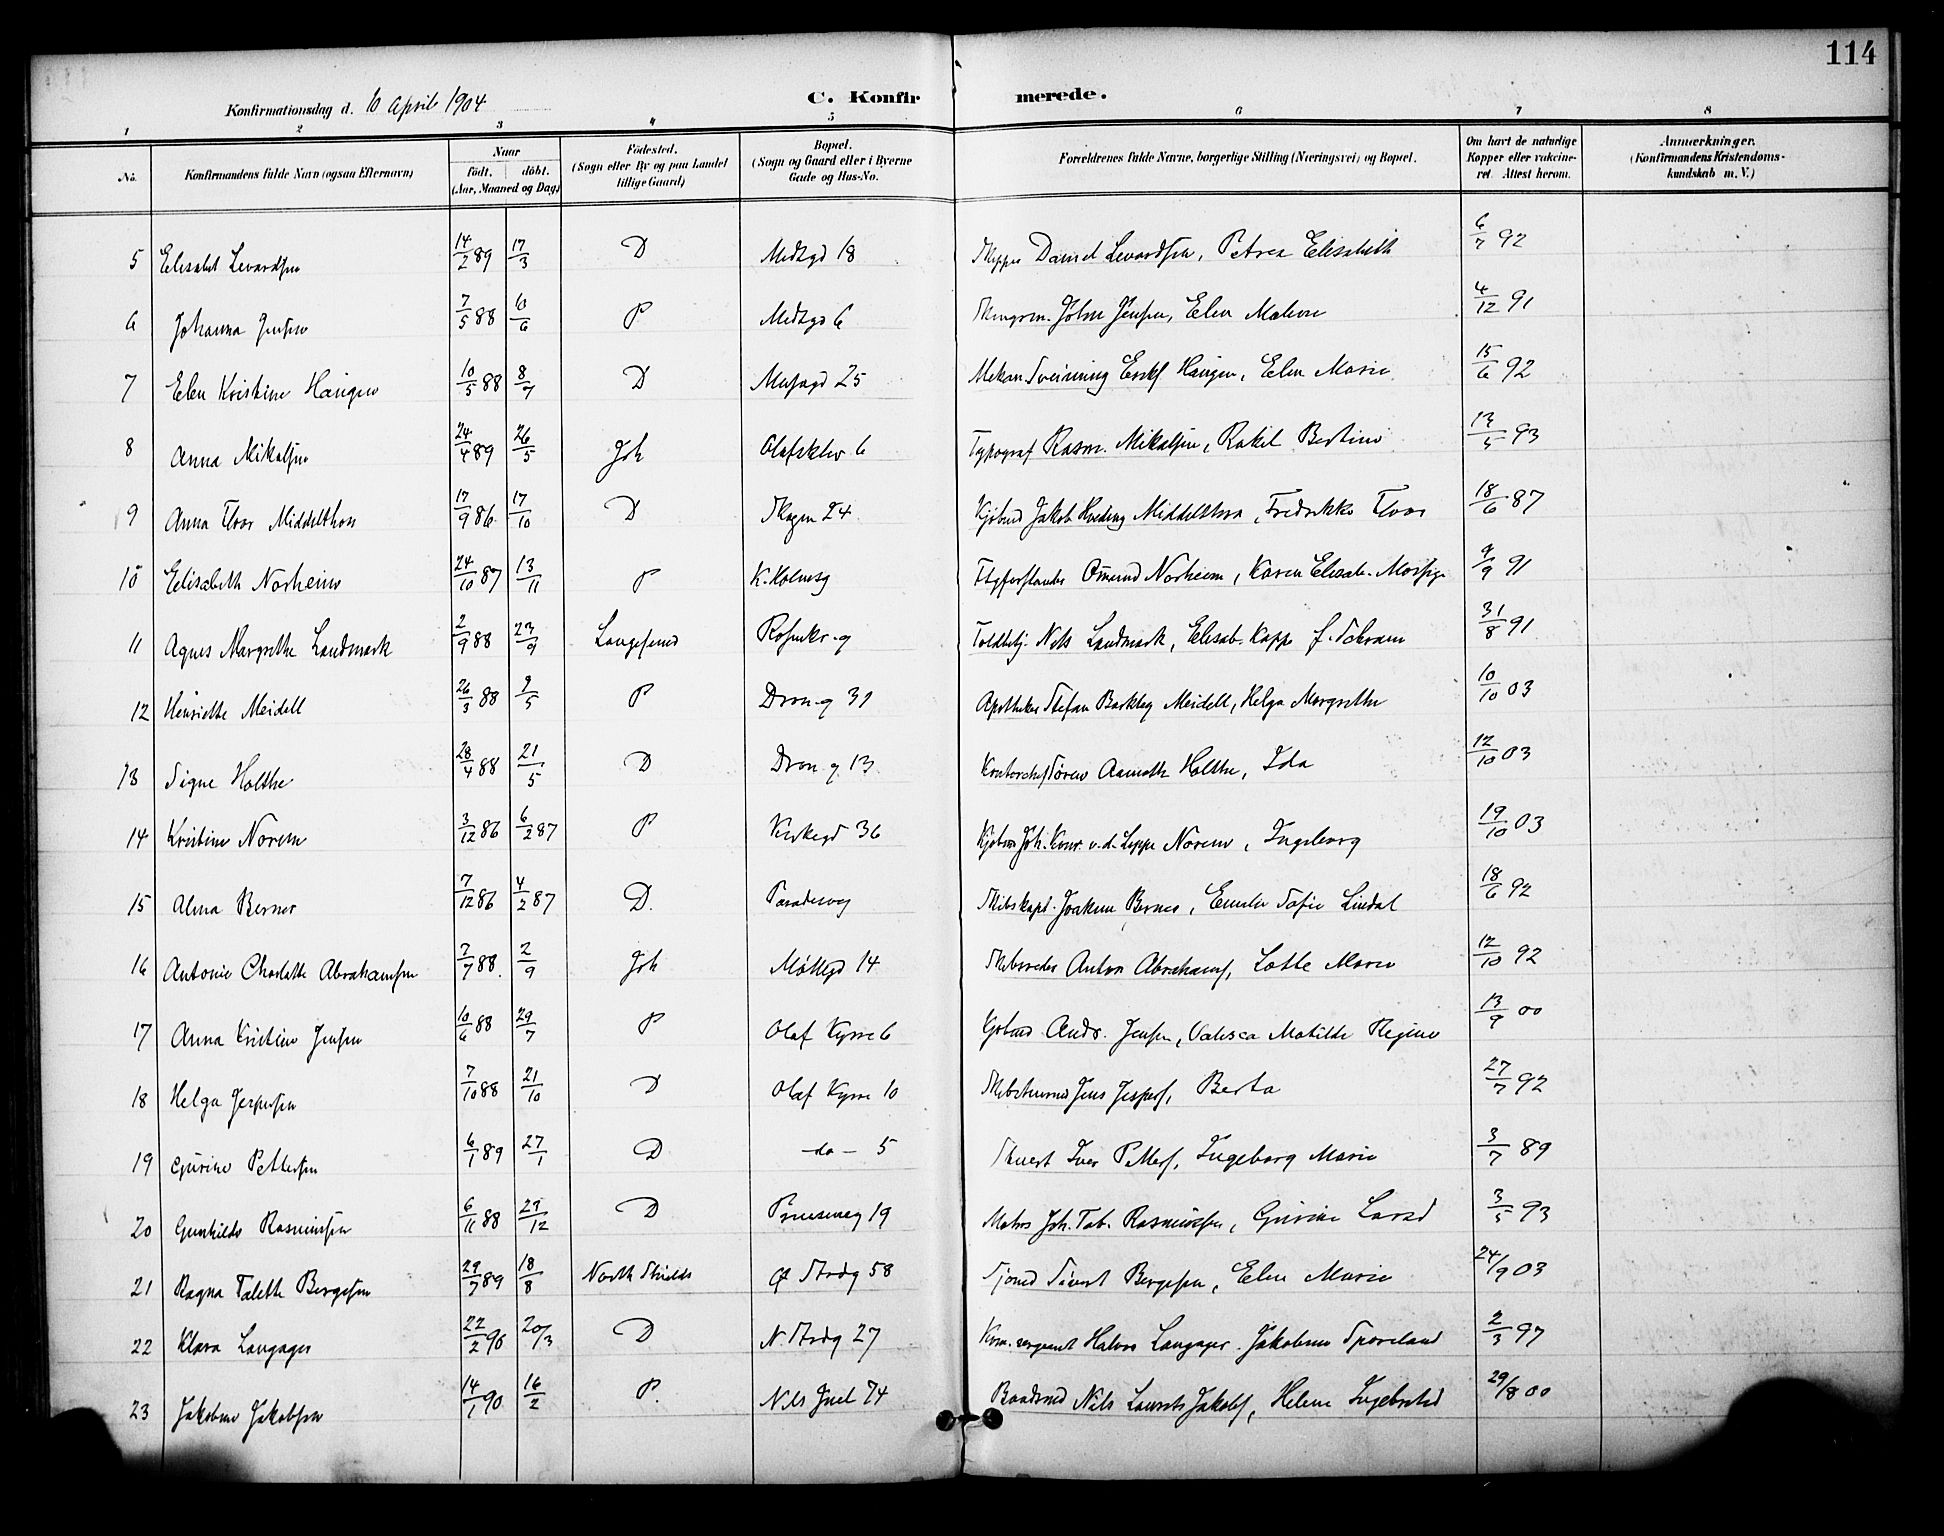 114
Konfirmationsdag d. 10 April 1904
C. Konfirmerede.
1 2 3 4 5 6 7 8
No. Konfirmandens fulde Navn (ogsaa Efternavn) Naar født. døbt. (Aar, Maaned og Dag) Fødested. (Sogn eller By og paa Landet tillige Gaard) Bopæl. (Sogn og Gaard eller i Byerne Gade og Hus-No. Forældrenes fulde Navne, borgerlige Stilling (Næringsvei) og Bopæl. Om havt de naturlige Kopper eller vaccineret. Attest herom. Anmærkninger. (Konfirmandens Kristendomskundskab m. V.)
5 Elisabet Levardsen 14/2 89 17/3 D 18 Daniel Levardsen, Petrea Elisabeth 6/7 92
6 Johanna Jensen 7/5 88 10/6 P 6 John Jensen, Elen Malene 4/12 91
7 Elen Kristine Haugen 10/5 88 8/7 D 25 Mekan. Tveinning Haugen, Elen Marie 15/6 92
8 Anna Mikalsen 24/4 89 26/5 Joh Olafsklev 6 Typograf Rasm. Mikalsen, Rakel Bertine 13/5 93
9 Anna Floor Middelthon 17/9 86 17/10 D Skagen 24 Kjøbmd Jakob Middelthon, Fredrikke Floor 18/6 87
10 Elisabeth Norheim 24/10 87 13/11 P K. Holmeg Omund Norheim, Karen Elisab. 4/9 91
11 Agnes Margrethe Landmark 2/9 88 23/9 Langesund Rosenkr. g Toldbetj. Nils Landmark, Elisab. Kapp f. Schram 31/8 91
12 Henriette Meidell 26/3 88 9/5 P Dron. g 31 Apotheker Stefan Barkley Meidell, Helga Margrethe 10/10 03
13 Signe Holthe 28/4 88 21/5 D Dron g 13 Kontorchef Søren Aamoth Holthe, Ida 12/10 03
14 Kristine Norem 3/12 86 6/2 87 P Kirkegd 36 Kjøbm Joh. Konr. v. d. Lippe Norem, Ingeborg 19/10 03
15 Alma Berner 7/12 86 4/2 87 D. Paradisveg Skibskapt. Joakim Berner, Emilie Sofie Lindal 18/6 92
16 Antonie Charlotte Abrahamsen 7/7 88 2/9 Joh 14 Skibsreder Anton Abrahams, Lotte Marie 12/10 92
17 Anna Kristine Jensen 10/6 88 29/7 P Olaf Kyrre 6 Kjøbmd Andr. Jensen, Valesca Matilde Regine 13/9 00
18 Helga Jespersen 7/10 88 21/10 D Olaf Kyrre 10 Jens Jespers, Berta 27/7 92
19 Gurine Pettersen 6/1 89 27/1 D - do - 5 Iver Petters, Ingeborg Marie 3/7 89
20 Gunhilde Rasmussen 6/11 88 27/12 D 19 Matros Joh. Tob. Rasmussen, Gurine Larsd 3/5 93
21 Ragna Talette Bergesen 29/7 89 18/8 North Shields Ø Strdg 58 Sjømd Sivert Bergesen, Elen Marie 24/9 03
22 Klara Langager 22/2 90 20/3 D N. Strdg 27 Kom. sergeant Halvor Langager. Jakobine 2/3 97
23 Jakobine Jakobsen 14/1 90 16/2 P. Nils Juel 74 Baadsmd Nils Laurits Jakobs, Helene Ingebretsd 29/8 00